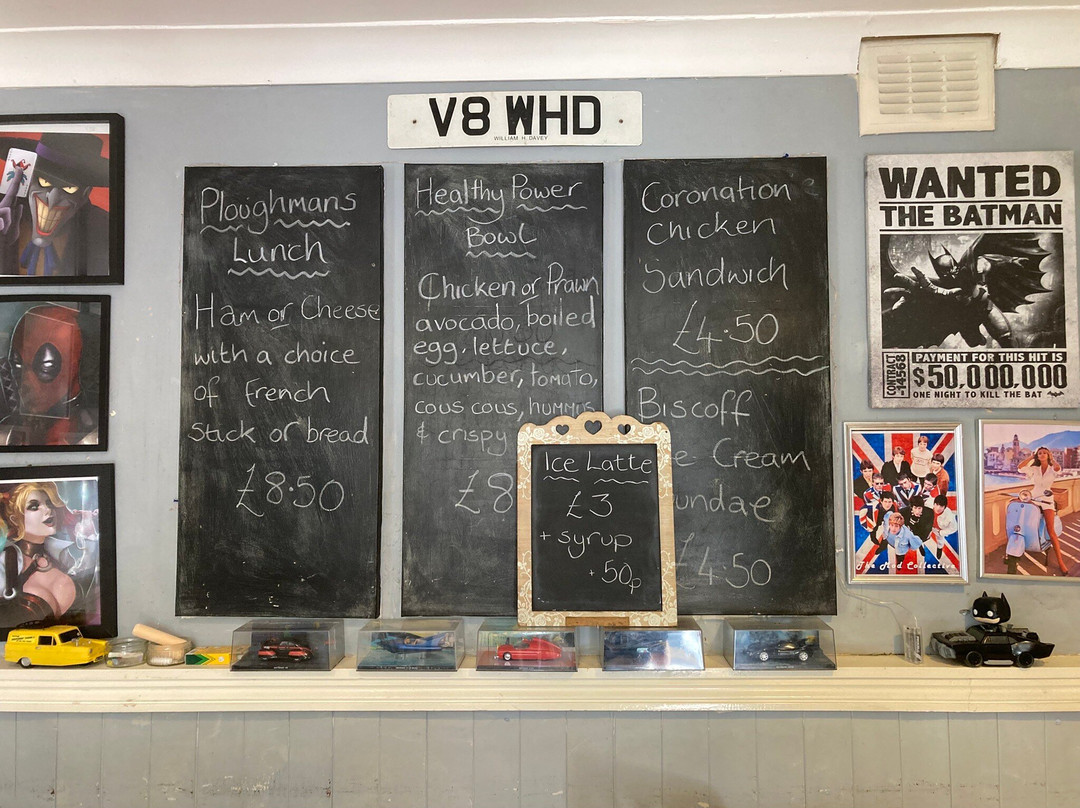 V8 WHD
WILLIAM H. DAVEY
Ploughmans
Lunch
Ham or Cheese
with a choice
of French
stick or bread
£8.50
Healthy Power
Bowl
Chicken or Prawn
avocado, boiled
egg, lettuce,
cucumber, tomato,
cous cous, hummus
& crispy
£8
Coronation
Chicken
Sandwich
£4.50
Biscoff
Cream
£4.50
Ice Latte
£3
+ syrup
+50p
WANTED
THE BATMAN
CONTRACT
PAYMENT FOR THIS HIT IS
$50,000,000
ONE NIGHT TO KILL THE BAT
The Mod Collective